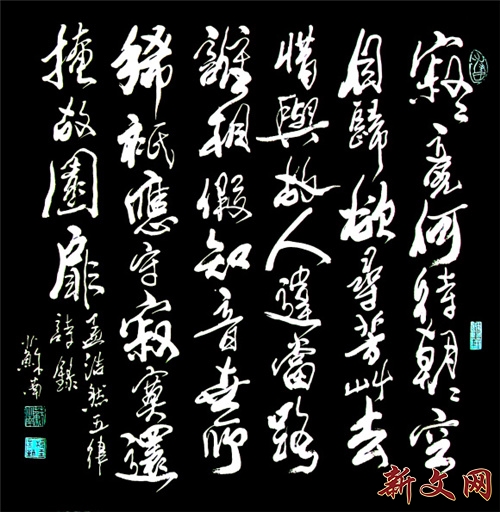 寂〻竟何待朝〻空
自歸欲尋芳艸去
惜與故人違當路
誰相假知音世所
稀祇應守寂寞還
掩故園扉
孟浩然五律
詩錄
蘇南
新文网